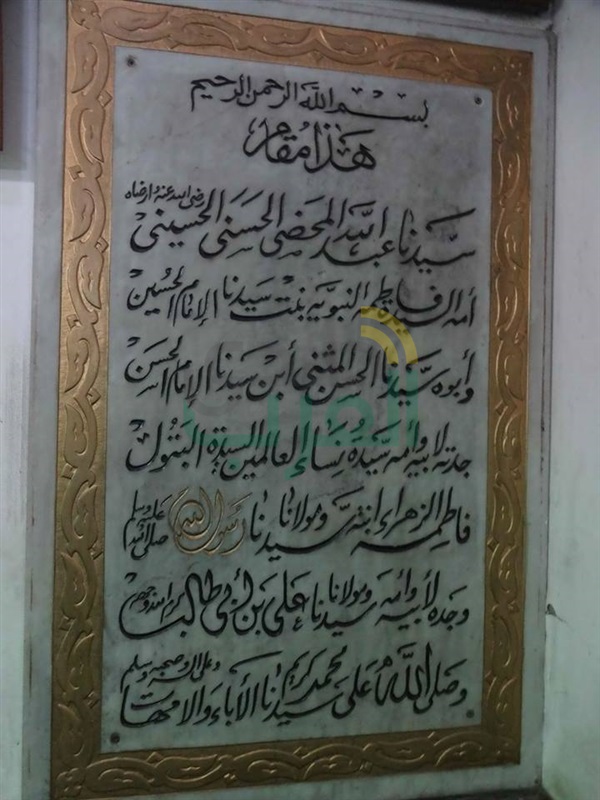 بسم الله الرحمن الرحيم
هذا مقام
سيدنا عبد الله المحضى الحسنى الحسينى رضى الله عنه وارضاه
أمه السيدة فاطمة النبوية بنت سيدنا الإمام الحسين
وأبوه سيدنا الحسن المثنى أبن سيدنا الإمام الحسن
جدته لابيه وأمه سيدة نساء العالمين السيدة البتول
فاطمة الزهراء ابنة سيدنا ومولانا رسول الله صلى الله عليه وسلم
وجده لأبيه وأمه سيدنا ومولانا على بن أبى طالب كرم الله وجهه
وصلى الله على سيدنا محمد كريم الأباء والامهات وعلى اله وصحبه وسلم